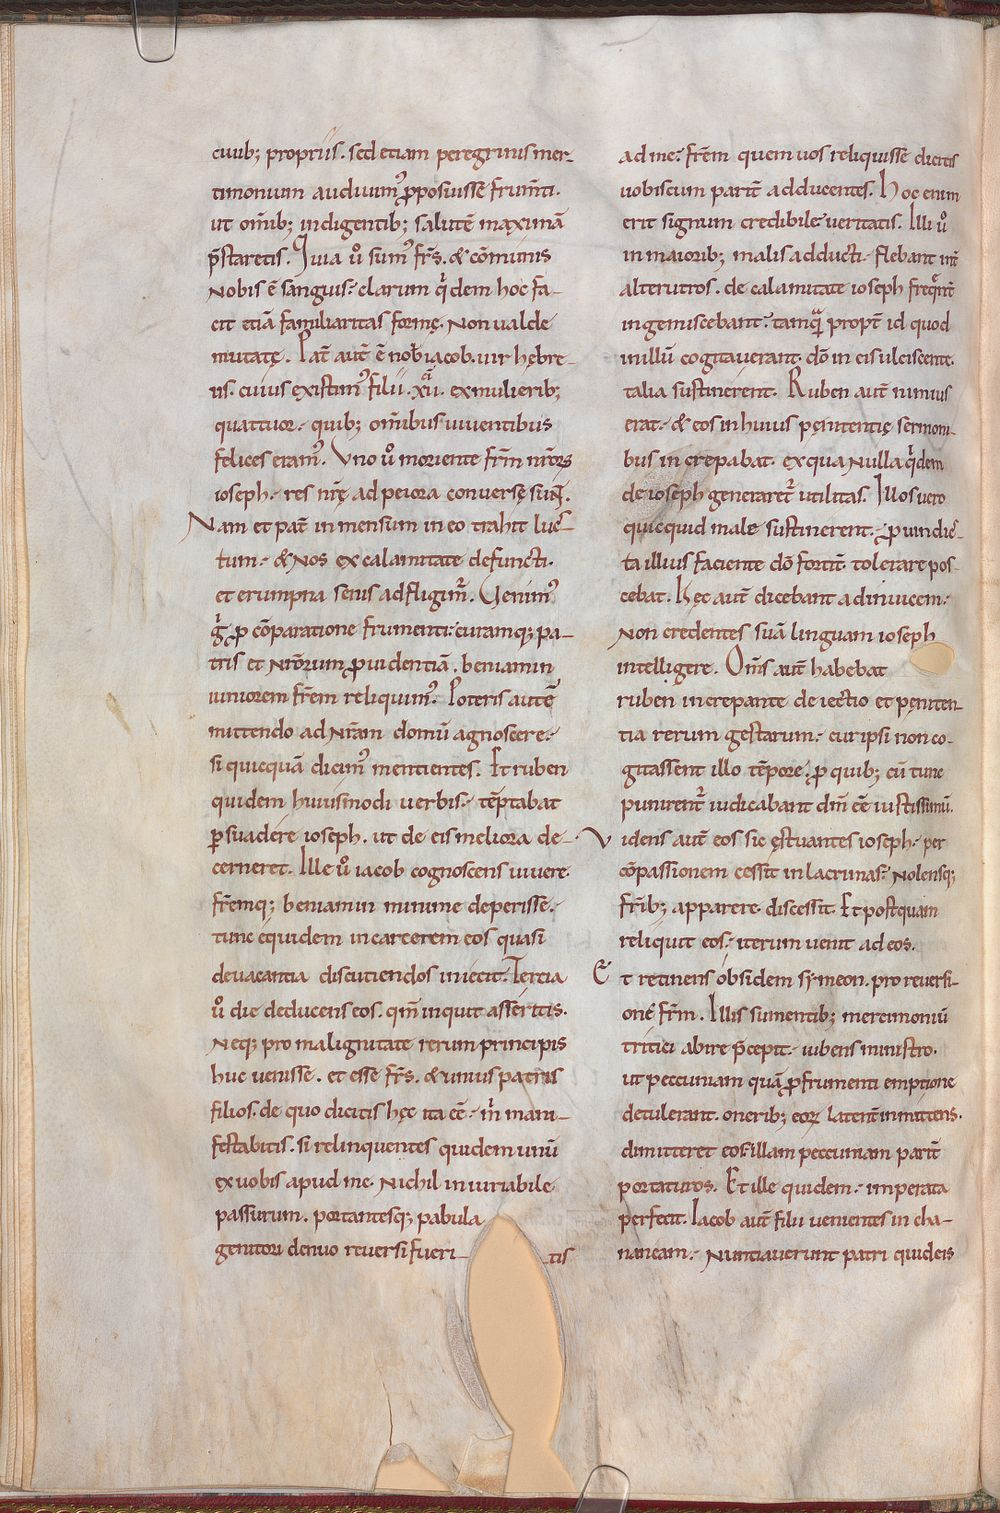 cuib; propriis. sed etiam peregrinis mer-
timonium audiuim᷒ ꝓposuisse frum̄ti.
ut om̄ib; indigentib; salutē maximā
p̄staretis. Quia u᷒o sum᷒ fr̄s. & cōmunis
Nobis ē sanguis. clarum q͛dem hoc fa-
cit etiā familiaritas formę. Non ualde
mutatę. Pat̄ aut̄ ē nob̄ iacob. uir hębre-
us. cuius existim᷒ filii .xii. ex mulierib;
quattuor. quib; om̄ibus uiuentibus
felices eram᷒. Uno u᷒o moriente fr̄m nr̄ors
ioseph. res nr̄ę ad peiora conuersę sun̄.
Nam et pat̄ in mensum in eo trahit luc-
tum. & Nos ex calamitate defuncti.
et erumpna senis adfligim̄. Uenim᷒
g͛ ꝓ cōparatione frumenti. curamq; pa-
tris et Nr̄orum ꝓuidentiā. beniamin
iuniorem fr̄em reliquim᷒. Poteris autē
mittendo ad Nr̄am domū agnoscere.
si quicquā dicim᷒ mentientes. Et ruben
quidem huiusmodi uerbis. tēptabat
ꝑsuadere ioseph. ut de eis meliora de-
cerneret. Ille u᷒o iacob cognoscens uiuere.
fr̄emq; beniamin minime deperisse.
tunc equidem in carcerem eos quasi
deuacantia discutiendos iniecit. Tertia
u᷒o die deducens eos. qm̄ inquit asseritis.
Neq; pro malignitate rerum principis
huc uenisse. et esse fr̄s. & unius patris
filios. de quo dicitis hęc ita eē. m̄ mani-
festabitis. si relinquentes quidem unū
ex uobis apud me. Nichil iniuriabile
passurum. portantesq; pabula
genitori denuo reuersi fueri-tis
ad me. fr̄em quem uos reliquisse dicitis
uobiscum parit̄ adducentes. Hoc enim
erit signum credibile ueritatis. Illi u᷒o
in maiorib; malis adducti. flebant int̄
alterutros. de calamitate ioseph freq̄nt̄
ingemiscebant. tamq͛ propt̄ id quod
in illū cogitauerant. dō in eis ulciscente.
talia sustinerent. Ruben aut̄ nimius
erat. & eos in huius pęnitentię sermoni-
bus increpabat. ex qua Nulla q͛dem
de ioseph generaret᷒ utilitas. Illos uero
quicquid male sustinerent. ꝓ uindic-
ta illius faciente dō fortit̄ tolerare pos-
cebat. Hęc aut̄ dicebant adinuicem.
Non credentes suā linguam ioseph
intelligere. Om̄s aut̄ habebat
ruben increpante deiectio et pęniten-
tia rerum gestarum. cur ipsi non co-
gitassent illo tēpore. ꝓ quib; cū tunc
punirent᷒ iudicabant dm̄ eē iustissimū.
Uidens aut̄ eos sic ęstuantes ioseph. per
cōpassionem cessit in lacrimas. Nolensq;
fr̄ib; apparere. discessit. Et postquam
reliquit eos. iterum uenit ad eos.
Et retinens obsidem symeon. pro reuersi-
one fr̄m. Illis sumentib; mercimoniū
tritici abire p̄cepit. iubens ministro.
ut peccuniam quā ꝓ frumenti emptione
detulerant. onerib; eoꝝ latent̄ inmittens.
dimitteret eos illam peccuniam parit̄
portaturos. Et ille quidem. imperata
perfecit. Iacob aut̄ filii uenientes in cha-
naneam. Nuntiauerunt patri quideis